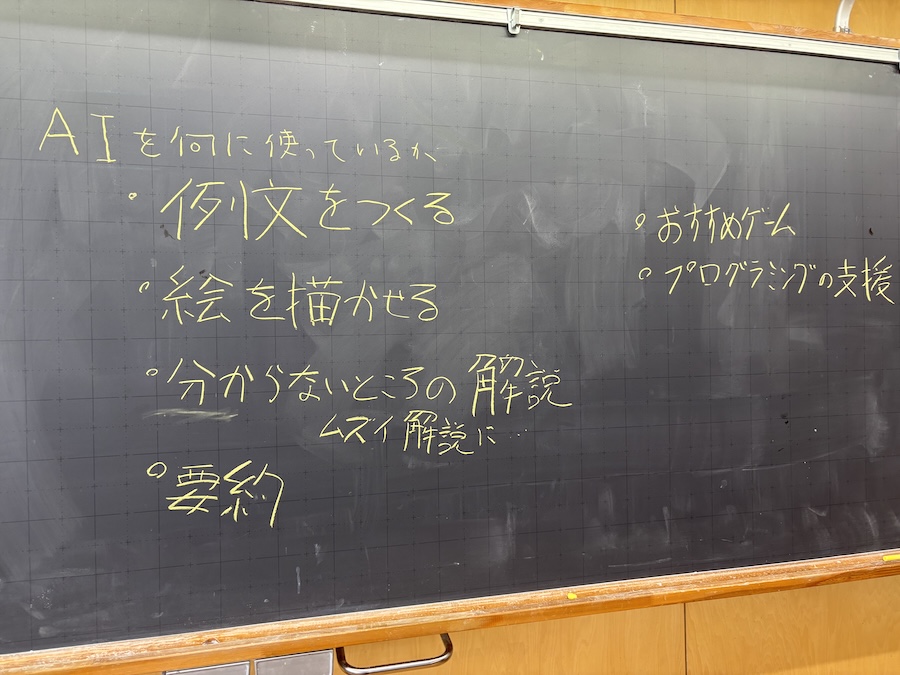 AIを何に使っているか
・例文をつくる
・絵を描かせる
・分からないところの解説
ムズイ解説に…
・要約
・おすすめゲーム
・プログラミングの支援